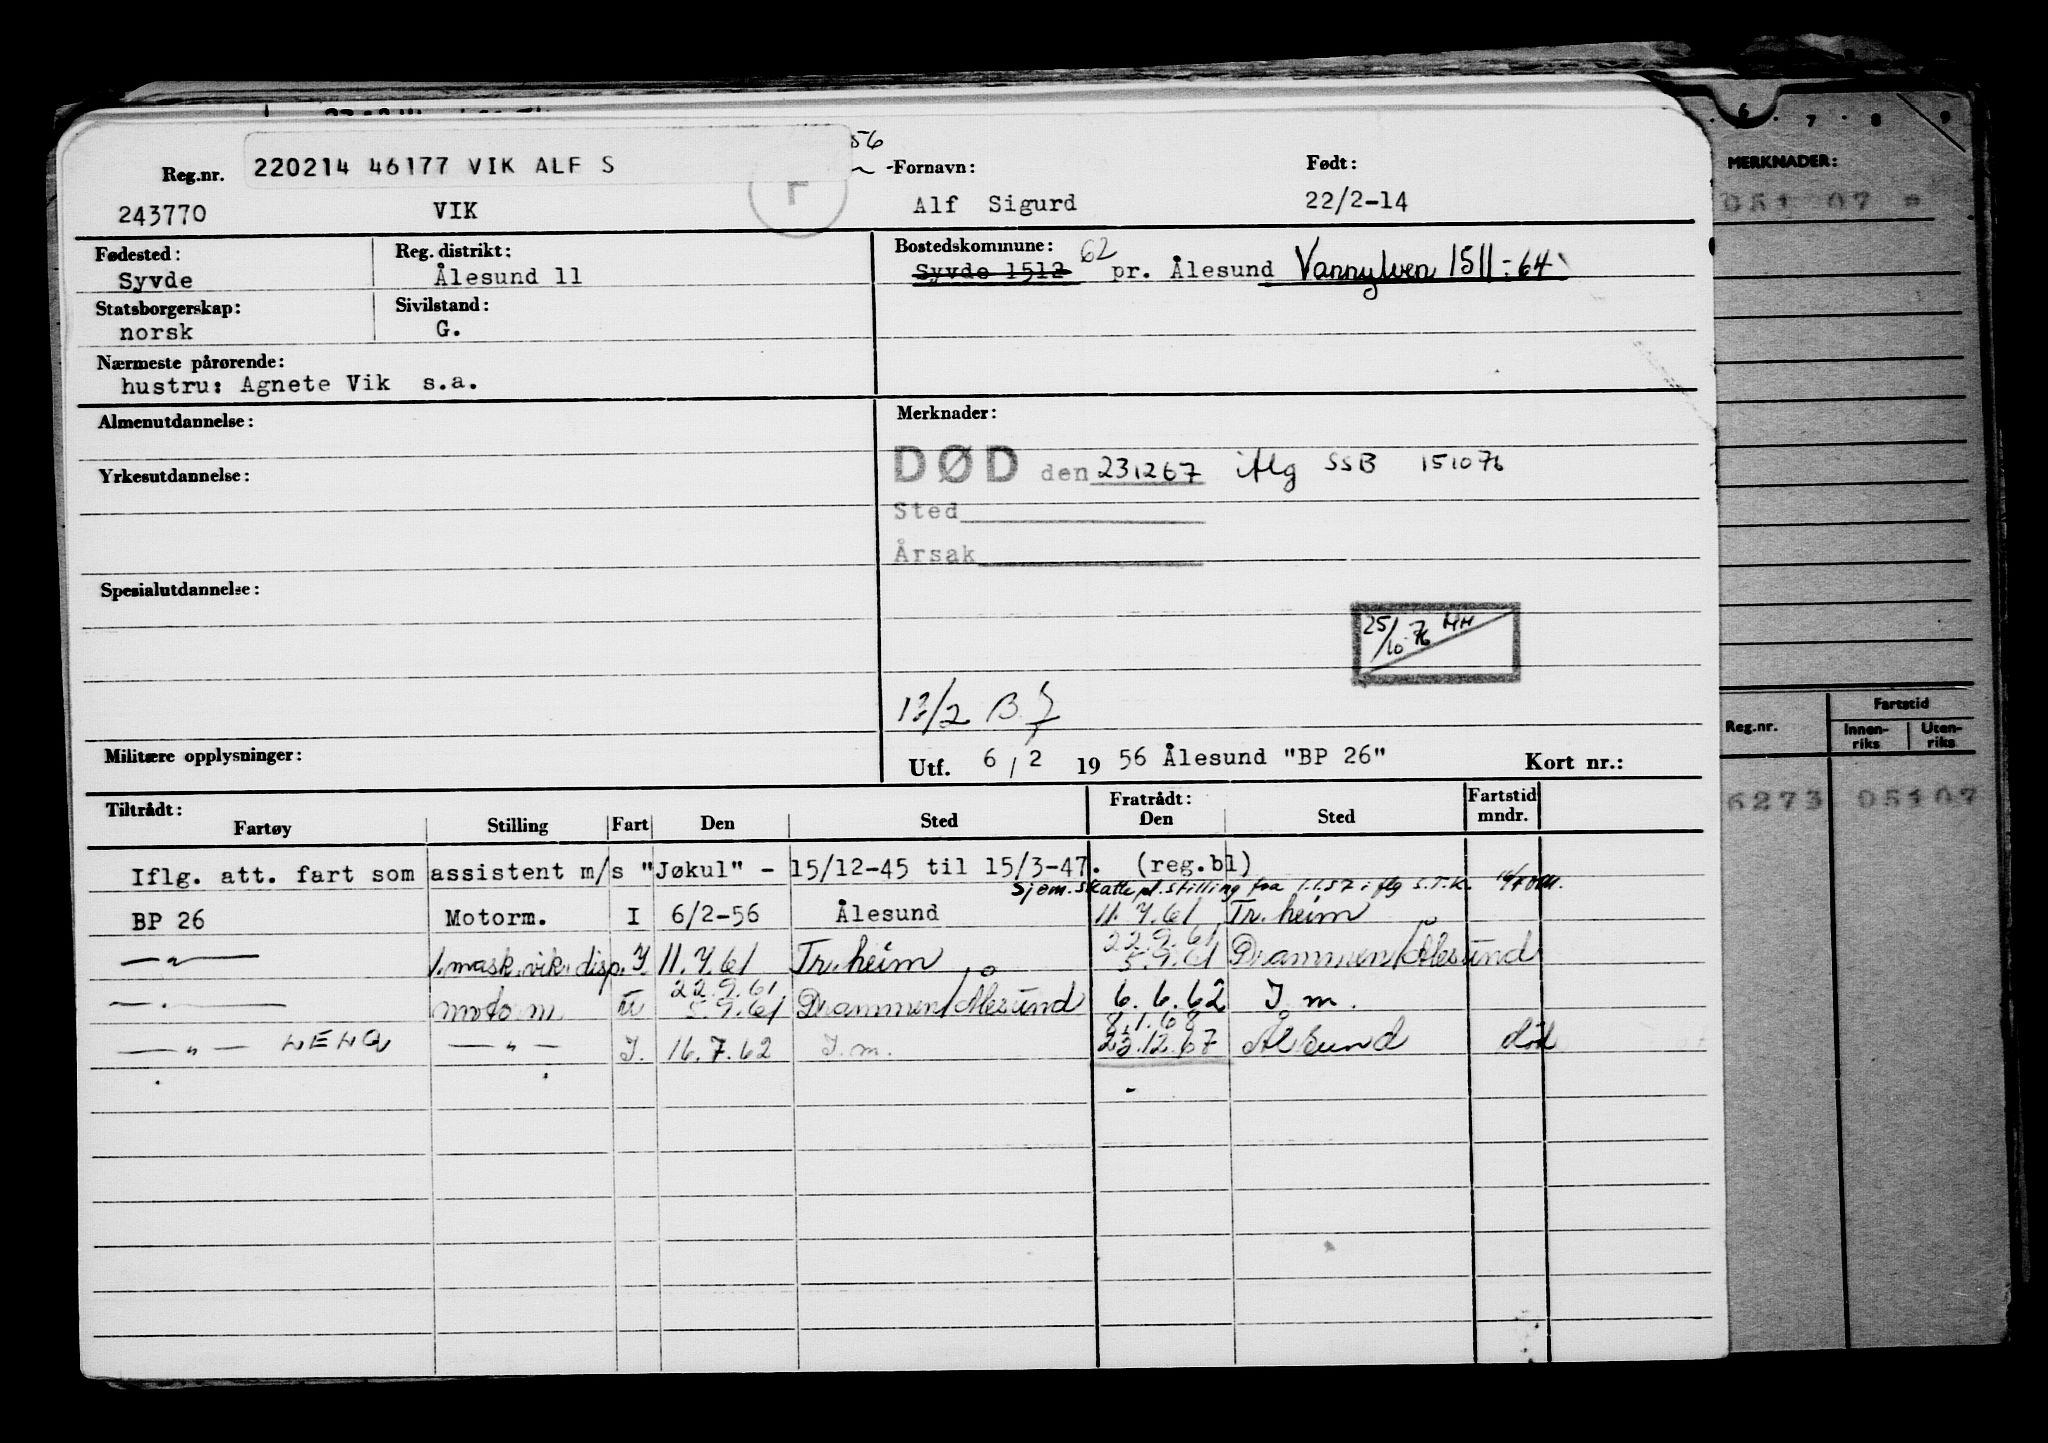 56
Reg.nr. 220214 46177 VIK ALF S Fornavn: Født:
243770 VIK Alf Sigurd 22/2-14
Fødested: Reg. distrikt: Bostedskommune: 62
Syvde Ålesund 11 Syvde 1512 pr. Ålesund Vannylven 1511:64
Statsborgerskap: Sivilstand:
norsk G.
Nærmeste pårørende:
hustru: Agnete Vik s.a.
Almenutdannelse: Merknader:
DØD den 231267 iflg SSB 151076
Yrkesutdannelse:
Sted
Årsak
Spesialutdannelse:
25/10-76 HH
12/2 B
Militære opplysninger: Utf. 6/2 1956 Ålesund "BP 26" Kort nr.:
Tiltrådt: Fratrådt: Fartstid
Fartøy Stilling Fart Den Sted Den Sted mndr.
Iflg. att. fart som assistent m/s "Jøkul" - 15/12-45 til 15/3-47. (reg.bl)
Sjøm.skattepl.stilling fra 1.1.57 iflg S.T.K.
BP 26 Motorm. I 6/2-56 Ålesund 11.7.61 Tr.heim
22.9.61
—"— 1.mask.vik.disp. I 11.7.61 Tr.heim 5.9.61 Drammen/Ålesund
22.9.61
—"— motorm U 5.9.61 Drammen/Ålesund 6.6.62 I.m.
8.1.68
—"— —"— I. 16.7.62 I.m. 23.12.67 Ålesund død
6 7 8 9
MERKNADER:
051 07
Reg.nr. Fartstid
Innenriks Utenriks
6273 05107